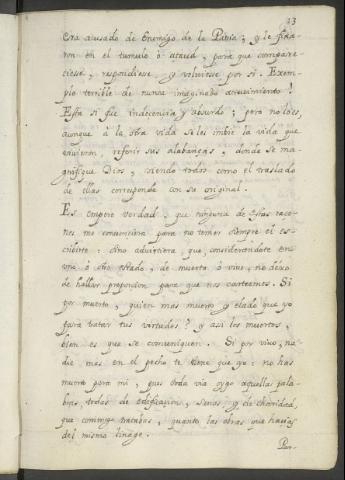 23
Era acusado de Enemigo de la Patria; y le fixa-
ron en el tumulo ò ataud, para que compare-
ciesse, respondiesse y volviesse por si. Exem-
plo terrible de nunca imaginado atrevimiento!
Essa si fue indecencia y absurdo; pero no lo es,
aunque à la otra vida se les imbie la vida que
vivieron, referir sus alabanças, donde se ma-
gnifique Dios, viendo todos como el traslado
de ellas corresponde con su original.
Es empero verdad, que ninguna de estas raço-
nes me convenciera para no temer siempre el es-
cribirte: sino advirtiera, que considerandote en
uno ò otro estado, de muerto ò vivo, no dexo
de hallar proporcion para que nos carteemos. Si
por muerto, quien mas muerto y elado que yo
para tratar tus virtudes? y assi los muertos,
bien es que se comuniquen. Si por vivo, na-
die mas en el pecho te tiene que yo: no has
muerto para mi, pues toda via oygo aquellas pala-
bras, todas de edificacion, señas y de charidad,
que conmigo tratabas, quanto las otras que hacias
del mismo linage.
Por-